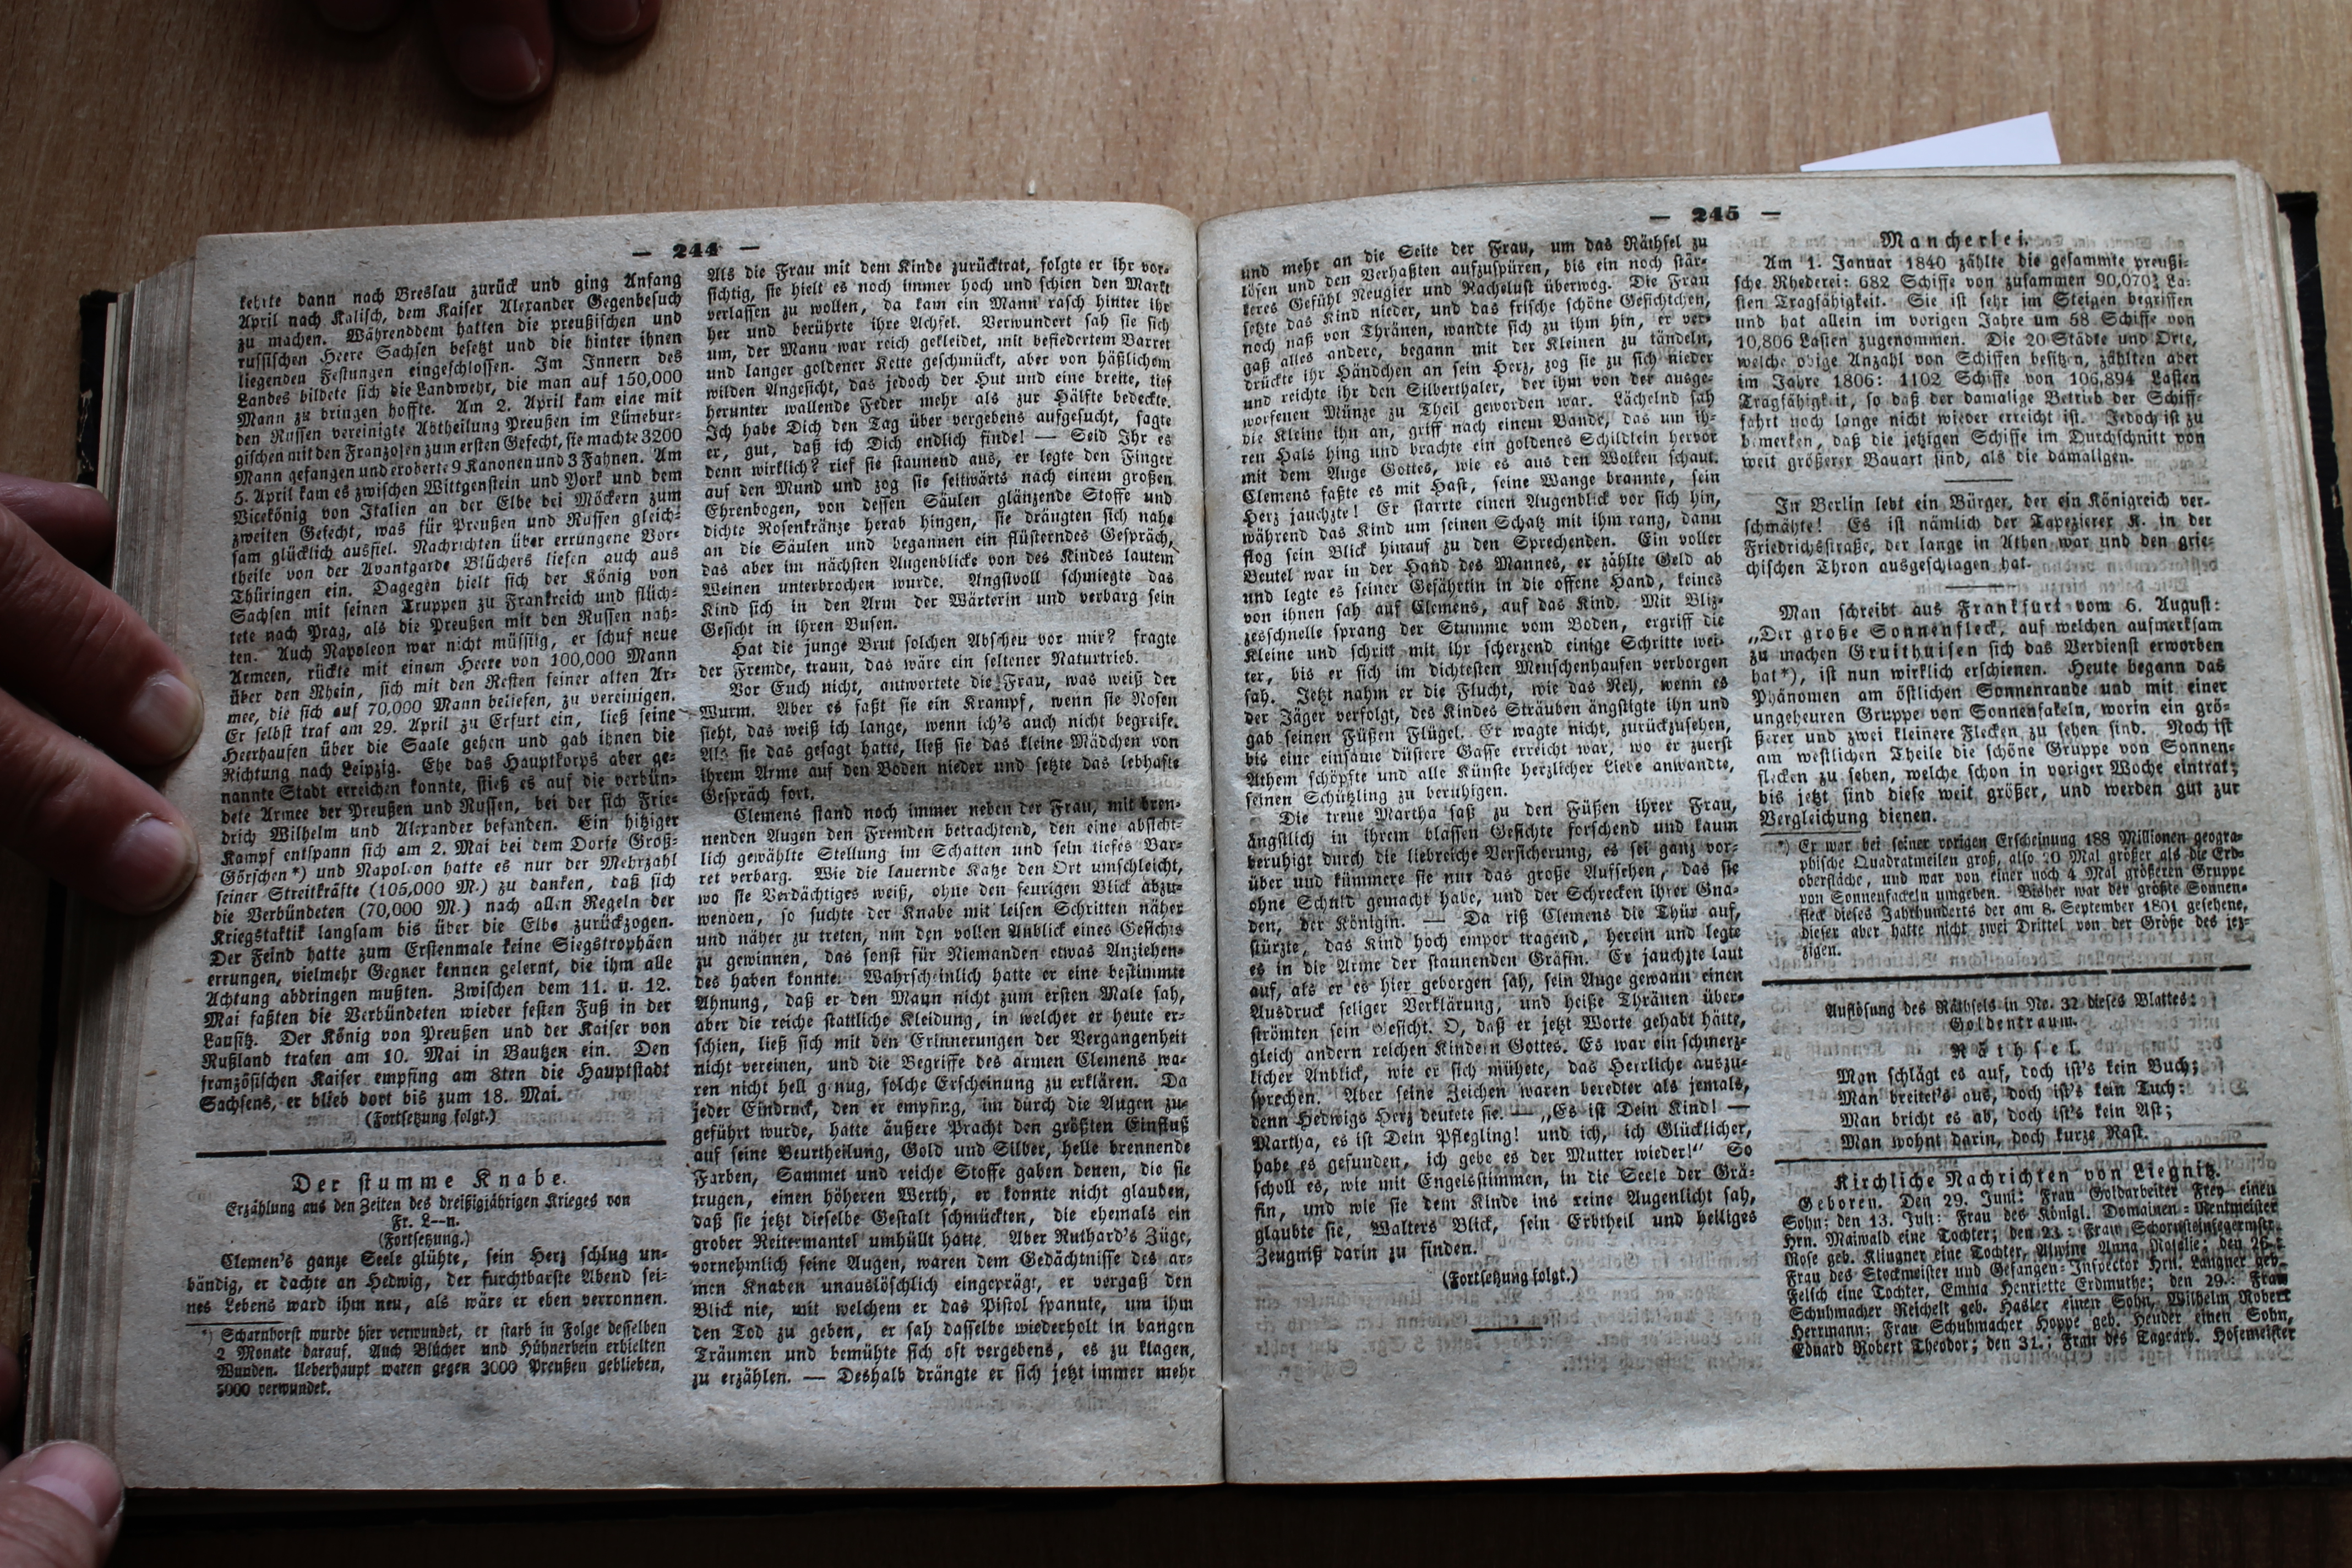 — 244 —
kehrte dann nach Breslau zurück und ging Anfang
April nach Kalisch, dem Kaiser Alexander Gegenbesuch
zu machen. Währenddem hatten die preußischen und
russischen Heere Sachsen besetzt und die hinter ihnen
liegenden Festungen eingeschlossen. Im Innern des
Landes bildete sich die Landwehr, die man auf 150,000
Mann zu bringen hoffte. Am 2. April kam eine mit
den Russen vereinigte Abtheilung Preußen im Lünebur-
gischen mit den Franzosen zum ersten Gefecht, sie machte 3200
Mann gefangen und eroberte 9 Kanonen und 3 Fahnen. Am
5. April kam es zwischen Wittgenstein und York und dem
Vicekönig von Italien an der Elbe bei Möckern zum
zweiten Gefecht, was für Preußen und Russen gleich-
sam glücklich ausfiel. Nachrichten über errungene Vor-
theile von der Avantgarde Blüchers liefen auch aus
Thüringen ein. Dagegen hielt sich der König von
Sachsen mit seinen Truppen zu Frankreich und flüch-
tete nach Prag, als die Preußen mit den Russen nah-
ten. Auch Napoleon war nicht müssig, er schuf neue
Armeen, rückte mit einem Heere von 100,000 Mann
über den Rhein, sich mit den Resten seiner alten Ar-
mee, die sich auf 70,000 Mann beliefen, zu vereinigen.
Er selbst traf am 29. April zu Erfurt ein, ließ seine
Heerhaufen über die Saale gehen und gab ihnen die
Richtung nach Leipzig. Ehe das Hauptkorps aber ge-
nannte Stadt erreichen konnte, stieß es auf die verbün-
dete Armee der Preußen und Russen, bei der sich Frie-
drich Wilhelm und Alexander befanden. Ein hitziger
Kampf entspann sich am 2. Mai bei dem Dorfe Groß-
Görschen*) und Napoleon hatte es nur der Mehrzahl
seiner Streitkräfte (105,000 M.) zu danken, daß sich
die Verbündeten (70,000 M.) nach allen Regeln der
Kriegstaktik langsam bis über die Elbe zurückzogen.
Der Feind hatte zum Erstenmale keine Siegstrophäen
errungen, vielmehr Gegner kennen gelernt, die ihm alle
Achtung abdringen mußten. Zwischen dem 11. u. 12.
Mai faßten die Verbündeten wieder festen Fuß in der
Lausitz. Der König von Preußen und der Kaiser von
Rußland trafen am 10. Mai in Bautzen ein. Den
französischen Kaiser empfing am 8ten die Hauptstadt
Sachsens, er blieb dort bis zum 18. Mai.
(Fortsetzung folgt.)
Der stumme Knabe.
Erzählung aus den Zeiten des dreißigjährigen Krieges von
Fr. L--n.
(Fortsetzung.)
Clemen's ganze Seele glühte, sein Herz schlug un-
bändig, er dachte an Hedwig, der furchtbarste Abend sei-
nes Lebens ward ihm neu, als wäre er eben verronnen.
*) Scharnhorst wurde hier verwundet, er starb in Folge desselben
2 Monate darauf. Auch Blücher und Hühnerbein erhielten
Wunden. Ueberhaupt waren gegen 3000 Preußen geblieben,
5000 verwundet.
Als die Frau mit dem Kinde zurücktrat, folgte er ihr vor-
sichtig, sie hielt es noch immer hoch und schien den Markt
verlassen zu wollen, da kam ein Mann rasch hinter ihr
her und berührte ihre Achsel. Verwundert sah sie sich
um, der Mann war reich gekleidet, mit befiedertem Barret
und langer goldener Kette geschmückt, aber von häßlichem
wilden Angesicht, das jedoch der Hut und eine breite, tief
herunter wallende Feder mehr als zur Hälfte bedeckte.
Ich habe Dich den Tag über vergebens aufgesucht, sagte
er, gut, daß ich Dich endlich finde! — Seid Ihr es
denn wirklich? rief sie staunend aus, er legte den Finger
auf den Mund und zog sie seitwärts nach einem großen
Ehrenbogen, von dessen Säulen glänzende Stoffe und
dichte Rosenkränze herab hingen, sie drängten sich nahe
an die Säulen und begannen ein flüsterndes Gespräch,
das aber im nächsten Augenblicke von des Kindes lautem
Weinen unterbrochen wurde. Angstvoll schmiegte das
Kind sich in den Arm der Wärterin und verbarg sein
Gesicht in ihren Busen.
Hat die junge Brut solchen Abscheu vor mir? fragte
der Fremde, traun, das wäre ein seltener Naturtrieb.
Vor Euch nicht, antwortete die Frau, was weiß der
Wurm. Aber es faßt sie ein Krampf, wenn sie Rosen
sieht, das weiß ich lange, wenn ich's auch nicht begreife.
Als sie das gesagt hatte, ließ sie das kleine Mädchen von
ihrem Arme auf den Boden nieder und setzte das lebhafte
Gespräch fort.
Clemens stand noch immer neben der Frau, mit bren-
nenden Augen den Fremden betrachtend, den eine absicht-
lich gewählte Stellung im Schatten und sein tiefes Bar-
ret verbarg. Wie die lauernde Katze den Ort umschleicht,
wo sie Verdächtiges weiß, ohne den feurigen Blick abzu-
wenden, so suchte der Knabe mit leisen Schritten näher
und näher zu treten, um den vollen Anblick eines Gesichts
zu gewinnen, das sonst für Niemanden etwas Anziehen-
des haben konnte. Wahrscheinlich hatte er eine bestimmte
Ahnung, daß er den Mann nicht zum ersten Male sah,
aber die reiche stattliche Kleidung, in welcher er heute er-
schien, ließ sich mit den Erinnerungen der Vergangenheit
nicht vereinen, und die Begriffe des armen Clemens wa-
ren nicht hell genug, solche Erscheinung zu erklären. Da
jeder Eindruck, den er empfing, im durch die Augen zu-
geführt wurde, hatte äußere Pracht den größten Einfluß
auf seine Beurtheilung, Gold und Silber, helle brennende
Farben, Sammet und reiche Stoffe gaben denen, die sie
trugen, einen höheren Werth, er konnte nicht glauben,
daß sie jetzt dieselbe Gestalt schmückten, die ehemals ein
grober Reitermantel umhüllt hatte. Aber Ruthard's Züge,
vornehmlich seine Augen, waren dem Gedächtnisse des ar-
men Knaben unauslöschlich eingeprägt, er vergaß den
Blick nie, mit welchem er das Pistol spannte, um ihm
den Tod zu geben, er sah dasselbe wiederholt in bangen
Träumen und bemühte sich oft vergebens, es zu klagen,
zu erzählen. — Deshalb drängte er sich jetzt immer mehr
— 245 —
und mehr an die Seite der Frau, um das Räthsel zu
lösen und den Verhaßten aufzuspüren, bis ein noch stär-
keres Gefühl Neugier und Rachelust überwog. Die Frau
setzte das Kind nieder, und das frische schöne Gesichtchen,
noch naß von Thränen, wandte sich zu ihm hin, er ver-
gaß alles andere, begann mit der Kleinen zu tändeln,
drückte ihr Händchen an sein Herz, zog sie zu sich nieder
und reichte ihr den Silberthaler, der ihm von der ausge-
worfenen Münze zu Theil geworden war. Lächelnd sah
die Kleine ihn an, griff nach einem Bande, das um ih-
ren Hals hing und brachte ein goldenes Schildlein hervor
mit dem Auge Gottes, wie es aus den Wolken schaut.
Clemens faßte es mit Hast, seine Wange brannte, sein
Herz jauchzte! Er starrte einen Augenblick vor sich hin,
während das Kind um seinen Schatz mit ihm rang, dann
flog sein Blick hinauf zu den Sprechenden. Ein voller
Beutel war in der Hand des Mannes, er zählte Geld ab
und legte es seiner Gefährtin in die offene Hand, keines
von ihnen sah auf Clemens, auf das Kind. Mit Bliz-
zesschnelle sprang der Stumme vom Boden, ergriff die
Kleine und schritt mit ihr scherzend einige Schritte wei-
ter, bis er sich im dichtesten Menschenhaufen verborgen
sah. Jetzt nahm er die Flucht, wie das Reh, wenn es
der Jäger verfolgt, des Kindes Sträuben ängstigte ihn und
gab seinen Füßen Flügel. Er wagte nicht, zurückzusehen,
bis eine einsame düstere Gasse erreicht war, wo er zuerst
Athem schöpfte und alle Künste herzlicher Liebe anwandte,
seinen Schützling zu beruhigen.
Die treue Martha saß zu den Füßen ihrer Frau,
ängstlich in ihrem blassen Gesichte forschend und kaum
beruhigt durch die liebreiche Versicherung, es sei ganz vor-
über und kümmere sie nur das große Aufsehen, das sie
ohne Schuld gemacht habe, und der Schrecken ihrer Gna-
den, der Königin. — Da riß Clemens die Thür auf,
stürzte, das Kind hoch empor tragend, herein und legte
es in die Arme der staunenden Gräfin. Er jauchzte laut
auf, als er es hier geborgen sah, sein Auge gewann einen
Ausdruck seliger Verklärung, und heiße Thränen über-
strömten sein Gesicht. O, daß er jetzt Worte gehabt hätte,
gleich andern reichen Kindern Gottes. Es war ein schmerz-
licher Anblick, wie er sich mühete, das Herrliche auszu-
sprechen. Aber seine Zeichen waren beredter als jemals,
denn Hedwigs Herz deutete sie. — „Es ist Dein Kind! —
Martha, es ist Dein Pflegling! und ich, ich Glücklicher,
habe es gefunden, ich gebe es der Mutter wieder!“ So
scholl es, wie mit Engelsstimmen, in die Seele der Grä-
fin, und wie sie dem Kinde ins reine Augenlicht sah,
glaubte sie, Walters Blick, sein Erbtheil und heiliges
Zeugniß darin zu finden.
(Fortsetzung folgt.)
Mancherlei.
Am 1. Januar 1840 zählte die gesammte preußi-
sche Rhederei: 682 Schiffe von zusammen 90,070½ La-
sten Tragfähigkeit. Sie ist sehr im Steigen begriffen
und hat allein im vorigen Jahre um 58 Schiffe von
10,806 Lasten zugenommen. Die 20 Städte und Orte,
welche obige Anzahl von Schiffen besitzen, zählten aber
im Jahre 1806: 1102 Schiffe von 106,894 Lasten
Tragfähigkeit, so daß der damalige Betrieb der Schiff-
fahrt noch lange nicht wieder erreicht ist. Jedoch ist zu
bemerken, daß die jetzigen Schiffe im Durchschnitt von
weit größerer Bauart sind, als die damaligen.
In Berlin lebt ein Bürger, der ein Königreich ver-
schmähte! Es ist nämlich der Tapezierer K. in der
Friedrichsstraße, der lange in Athen war und den grie-
chischen Thron ausgeschlagen hat.
Man schreibt aus Frankfurt vom 6. August:
„Der große Sonnenfleck, auf welchen aufmerksam
zu machen Gruithuisen sich das Verdienst erworben
hat*), ist nun wirklich erschienen. Heute begann das
Phänomen am östlichen Sonnenrande und mit einer
ungeheuren Gruppe von Sonnenfakeln, worin ein grö-
ßerer und zwei kleinere Flecken zu sehen sind. Noch ist
am westlichen Theile die schöne Gruppe von Sonnen-
flecken zu sehen, welche schon in voriger Woche eintrat;
bis jetzt sind diese weit größer, und werden gut zur
Vergleichung dienen.
*) Er war bei seiner vorigen Erscheinung 188 Millionen geogra-
phische Quadratmeilen groß, also 20 Mal größer als die Erd-
oberfläche, und war von einer noch 4 Mal größeren Gruppe
von Sonnenfackeln umgeben. Bisher war der größte Sonnen-
fleck dieses Jahrhunderts der am 8. September 1801 gesehene,
dieser aber hatte nicht zwei Drittel von der Größe des jez-
zigen.
Auflösung des Räthsels in No. 32 dieses Blattes:
Goldentraum.
Räthsel.
Man schlägt es auf, doch ist's kein Buch;
Man breitet's aus, doch ist's kein Tuch;
Man bricht es ab, doch ist's kein Ast;
Man wohnt darin, doch kurze Rast.
Kirchliche Nachrichten von Liegnitz.
Geboren. Den 29. Juni: Frau Goldarbeiter Frey einen
Sohn; den 13. Juli: Frau des Königl. Domainen-Rentmeister
Hrn. Maiwald eine Tochter; den 23.: Frau Schornsteinfegermstr.
Rose geb. Klingner eine Tochter, Alwine Anna Rosalie; den 26.:
Frau des Stockmeister und Gefangen-Inspector Hrn. Langner geb.
Felsch eine Tochter, Emma Henriette Erdmuthe; den 29.: Frau
Schuhmacher Reichelt geb. Hasler einen Sohn, Wilhelm Robert
Herrmann; Frau Schuhmacher Hoppe geb. Heuder einen Sohn,
Eduard Robert Theodor; den 31.: Frau des Tagearb. Hofemeister